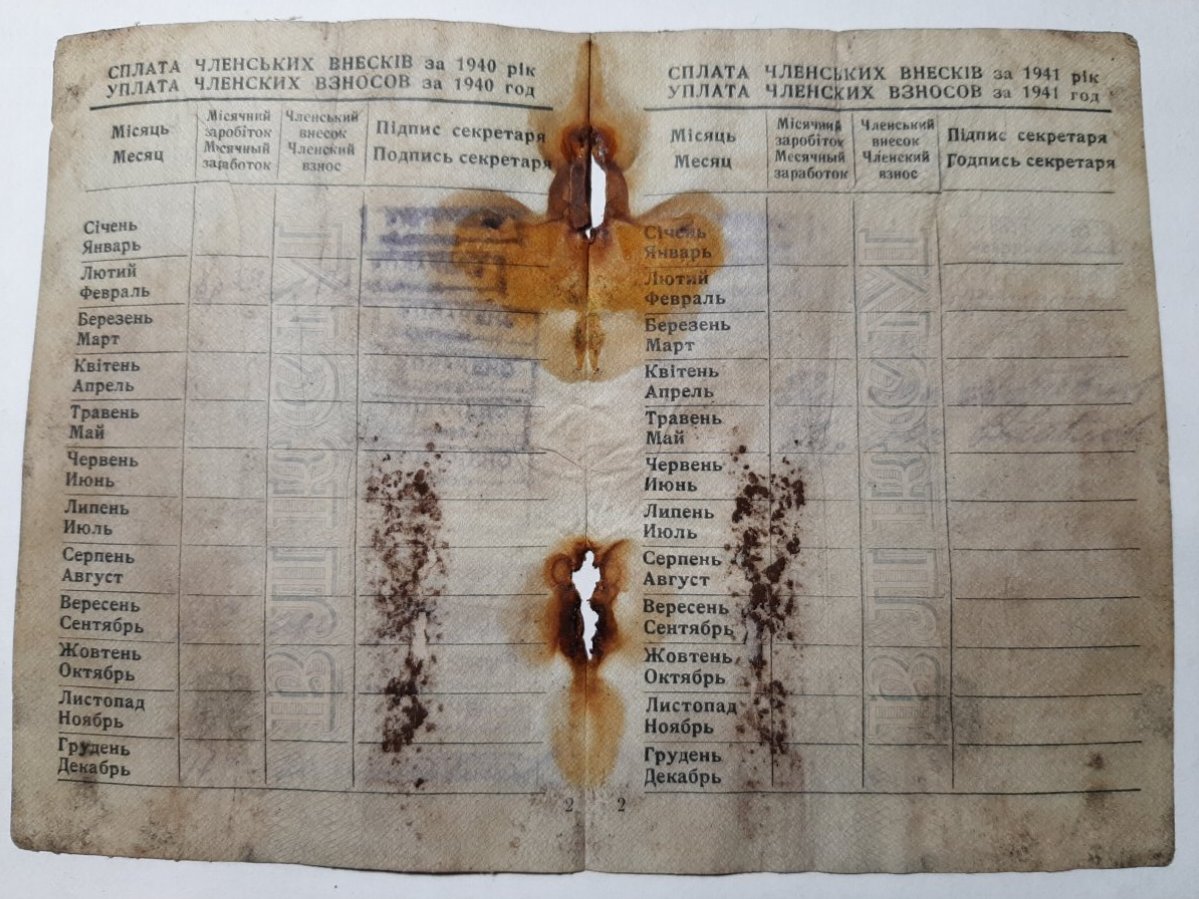 СПЛАТА ЧЛЕНСЬКИХ ВНЕСКІВ за 1940 рік
УПЛАТА ЧЛЕНСКИХ ВЗНОСОВ за 1940 год
Місяць
Месяц
Місячний
заробіток
Месячный
заработок
Членський
внесок
Членский
взнос
Підпис секретаря
Подпись секретаря
Січень
Январь
Лютий
Февраль
Березень
Март
Квітень
Апрель
Травень
Май
Червень
Июнь
Липень
Июль
Серпень
Август
Вересень
Сентябрь
Жовтень
Октябрь
Листопад
Ноябрь
Грудень
Декабрь
2
СПЛАТА ЧЛЕНСЬКИХ ВНЕСКІВ за 1941 рік
УПЛАТА ЧЛЕНСКИХ ВЗНОСОВ за 1941 год
Місяць
Месяц
Місячний
заробіток
Месячный
заработок
Членський
внесок
Членский
взнос
Підпис секретаря
Подпись секретаря
Січень
Январь
Лютий
Февраль
Березень
Март
Квітень
Апрель
Травень
Май
Червень
Июнь
Липень
Июль
Серпень
Август
Вересень
Сентябрь
Жовтень
Октябрь
Листопад
Ноябрь
Грудень
Декабрь
2